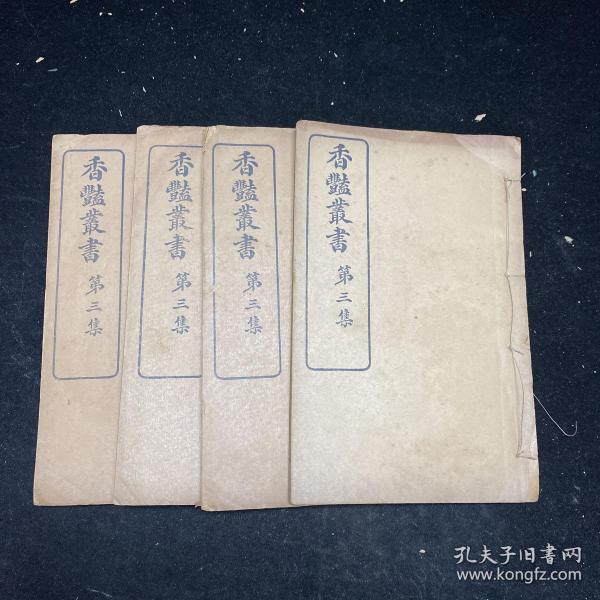 香豔叢書 第三集
香豔叢書 第三集
香豔叢書 第三集
香豔叢書 第三集
孔夫子旧書网
www.kongfz.com